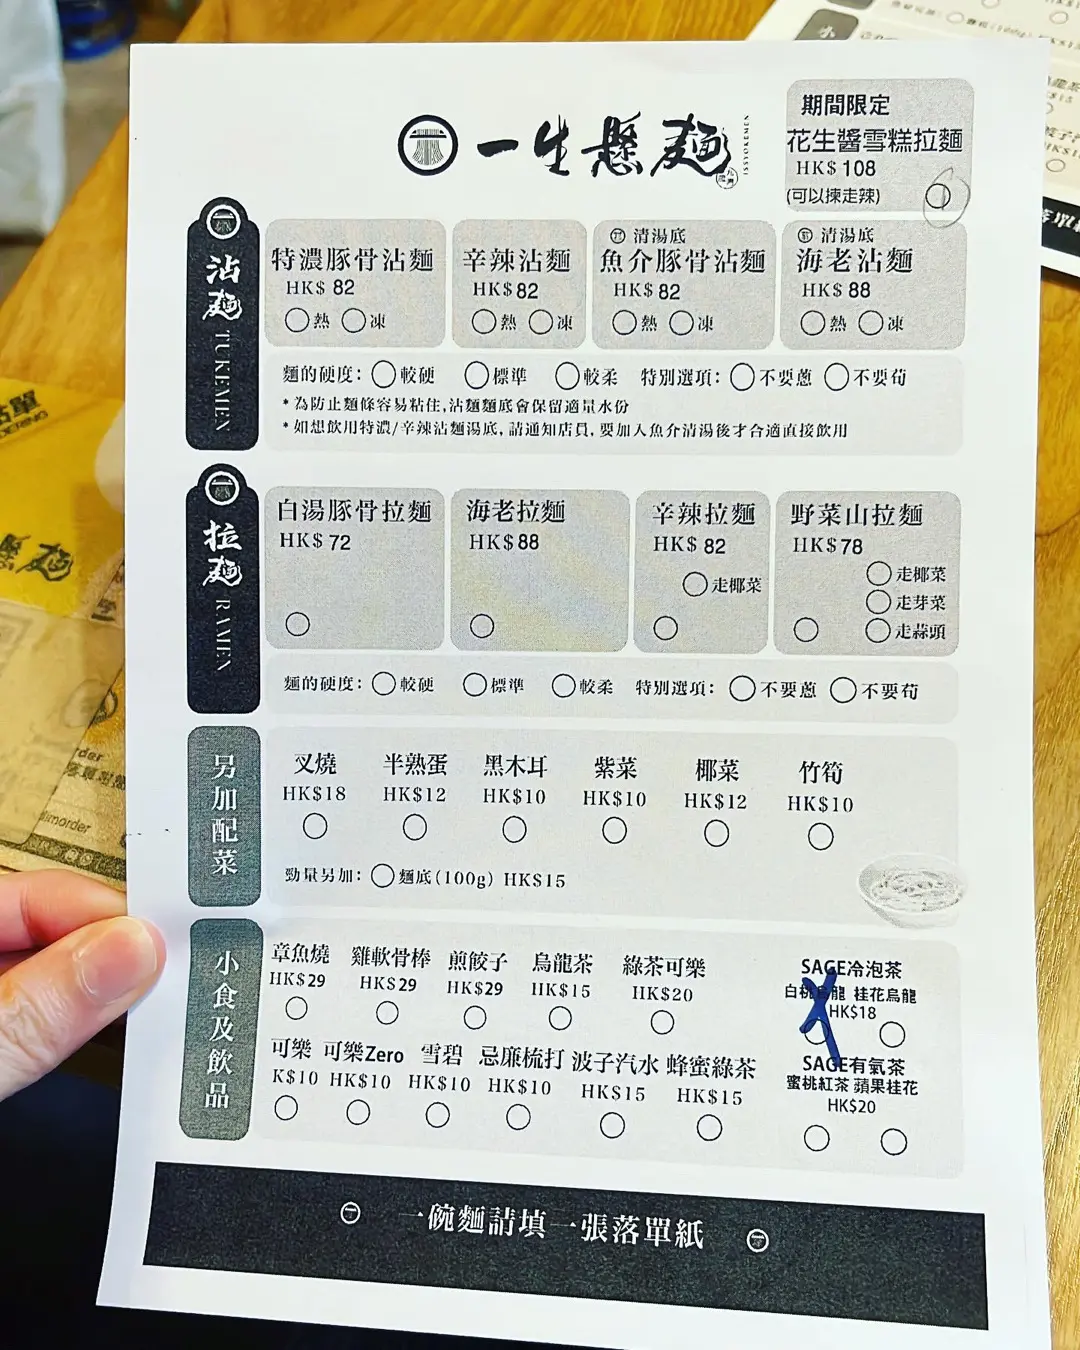 一生懸麵
ISSYOKEMEN
期間限定
花生醬雪糕拉麵
HK$ 108
(可以揀走辣)
沾麵 TUKEMEN
特濃豚骨沾麵
HK$ 82
熱 凍
辛辣沾麵
HK$ 82
熱 凍
清湯底
魚介豚骨沾麵
HK$ 82
熱 凍
清湯底
海老沾麵
HK$ 88
熱 凍
麵的硬度: 較硬 標準 較柔 特別選項: 不要蔥 不要荀
*為防止麵條容易粘住,沾麵麵底會保留適量水份
*如想飲用特濃/辛辣沾麵湯底, 請通知店員, 要加入魚介清湯後才合適直接飲用
拉麵 RAMEN
白湯豚骨拉麵
HK$ 72
海老拉麵
HK$ 88
辛辣拉麵
HK$ 82
走椰菜
野菜山拉麵
HK$78
走椰菜
走芽菜
走蒜頭
麵的硬度: 較硬 標準 較柔 特別選項: 不要蔥 不要荀
另加配菜
叉燒 半熟蛋 黑木耳 紫菜 椰菜 竹筍
HK$18 HK$12 HK$10 HK$10 HK$12 HK$10
勁量另加: 麵底(100g) HK$15
小食及飲品
章魚燒 雞軟骨棒 煎餃子 烏龍茶 綠茶可樂
HK$29 HK$29 HK$29 HK$15 HK$20
SAGE冷泡茶
白桃烏龍 桂花烏龍
HK$18
可樂 可樂Zero 雪碧 忌廉梳打 波子汽水 蜂蜜綠茶
K$10 HK$10 HK$10 HK$10 HK$15 HK$15
SAGE有氣茶
蜜桃紅茶 蘋果桂花
HK$20
一碗麵請填一張落單紙